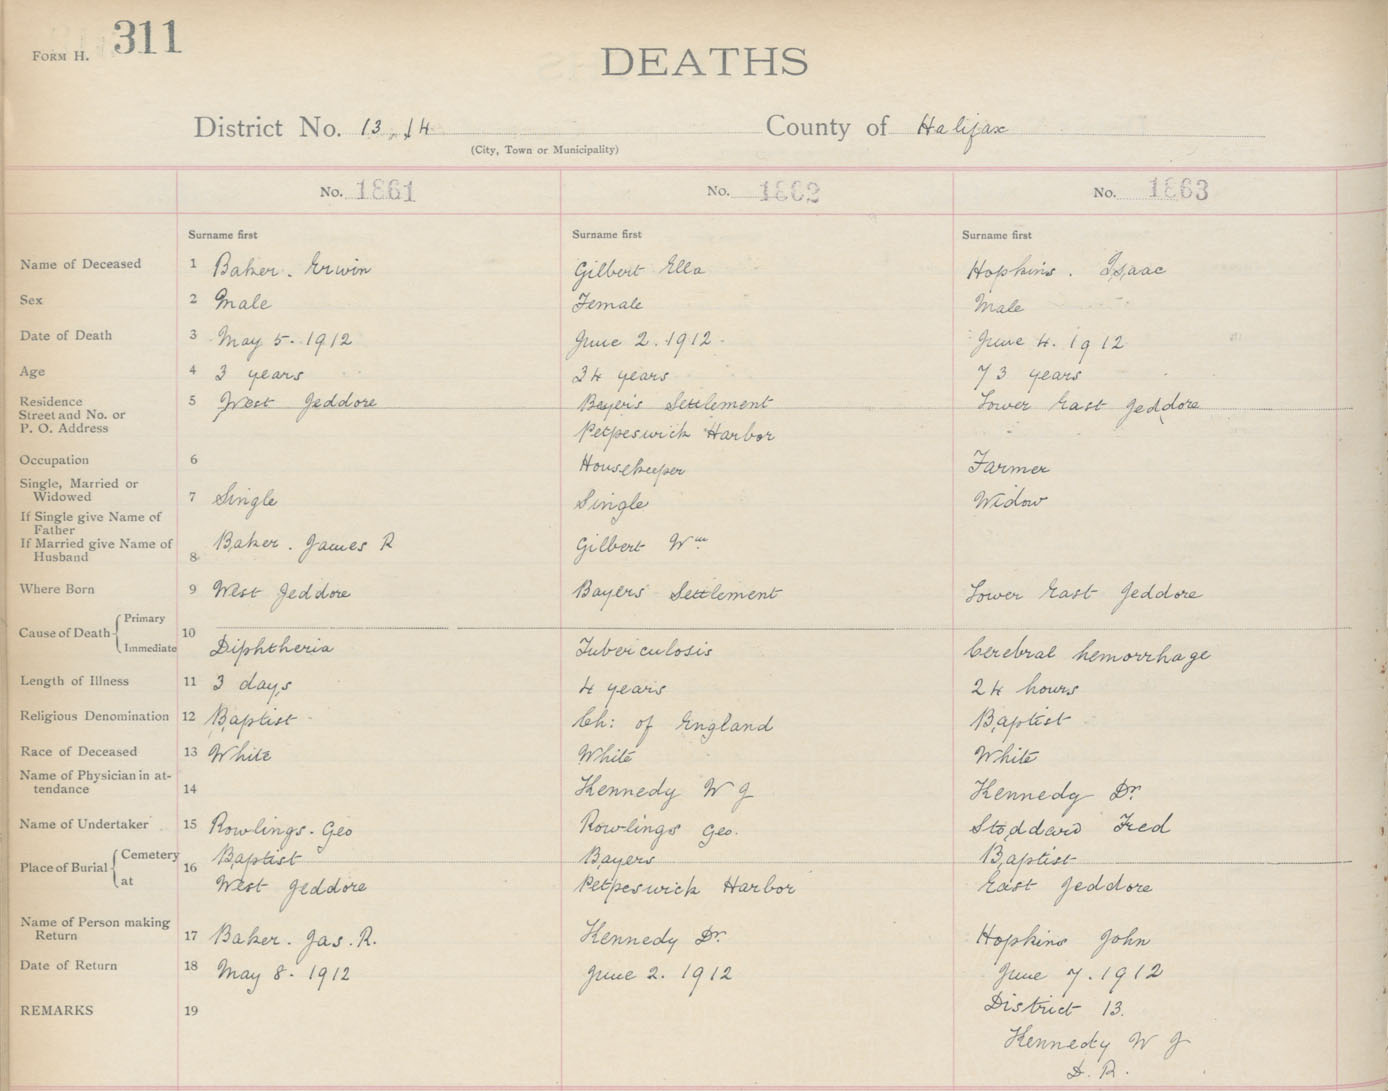 FORM H. 311
DEATHS
District No. 13, 14 County of Halifax
(City, Town or Municipality)
No. 1861 No. 1862 No. 1863
Surname first Surname first Surname first
Name of Deceased 1 Baker. Erwin Gilbert Ella Hopkins. Isaac
Sex 2 Male Female Male
Date of Death 3 May 5. 1912 June 2. 1912. June 4. 1912
Age 4 3 years 34 years 73 years
Residence 5 West Jeddore Bayers Settlement Lower East Jeddore
Street and No. or
P. O. Address Petpeswick Harbor
Occupation 6 Housekeeper Farmer
Single, Married or
Widowed 7 Single Single Widow
If Single give Name of
Father
If Married give Name of Baker. James R Gilbert Wm
Husband 8
Where Born 9 West Jeddore Bayers Settlement Lower East Jeddore
Primary
Cause of Death 10
Immediate Diphtheria Tuberculosis Cerebral hemorrhage
Length of Illness 11 3 days 4 years 24 hours
Religious Denomination 12 Baptist Ch: of England Baptist
Race of Deceased 13 White White White
Name of Physician in at-
tendance 14 Kennedy W J Kennedy Dr.
Name of Undertaker 15 Rowlings. Geo Rowlings Geo. Stoddard Fred
Cemetery Baptist Bayers Baptist
Place of Burial 16
at West Jeddore Petpeswick Harbor East Jeddore
Name of Person making
Return 17 Baker. Jas. R. Kennedy Dr. Hopkins John
Date of Return 18 May 8. 1912 June 2. 1912 June 7. 1912
REMARKS 19 District 13.
Kennedy W J
D. R.